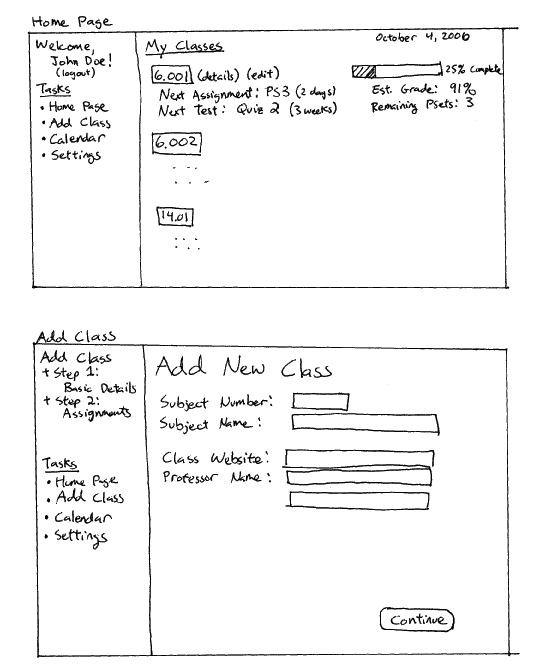 Home Page
Welcome,
John Doe!
(logout)
Tasks
• Home Page
• Add Class
• Calendar
• Settings
October 4, 2006
My Classes
6.001 (details) (edit)
25% Complete
Next Assignment: PS3 (2 days)
Est. Grade: 91%
Next Test: Quiz 2 (3 weeks)
Remaining Psets: 3
6.002
14.01
Add Class
Add Class
+ Step 1:
Basic Details
+ Step 2:
Assignments
Tasks
• Home Page
• Add Class
• Calendar
• Settings
Add New Class
Subject Number:
Subject Name:
Class Website:
Professor Name:
Continue